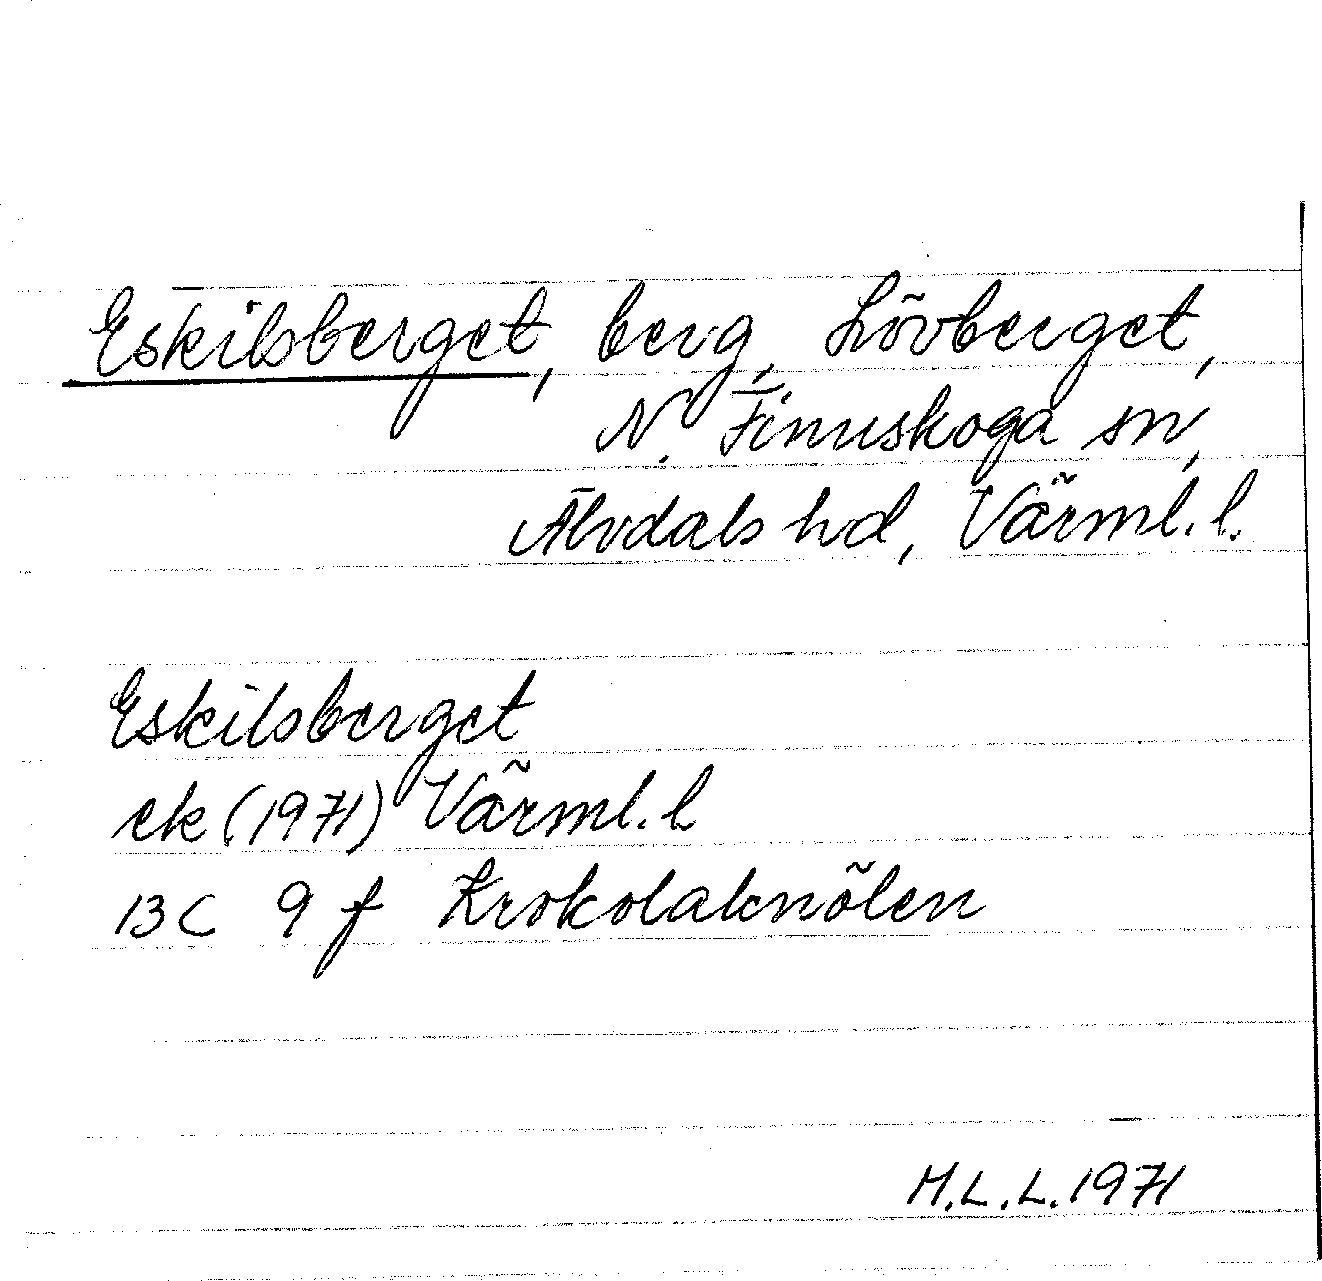 Eskilsberget, berg, Lövberget,
N. Finnskoga sn,
Älvdals hd, Värml. l.
Eskilsberget
ek (1971) Värml. l
13C 9 f Krokolaknölen
M.L.L. 1971